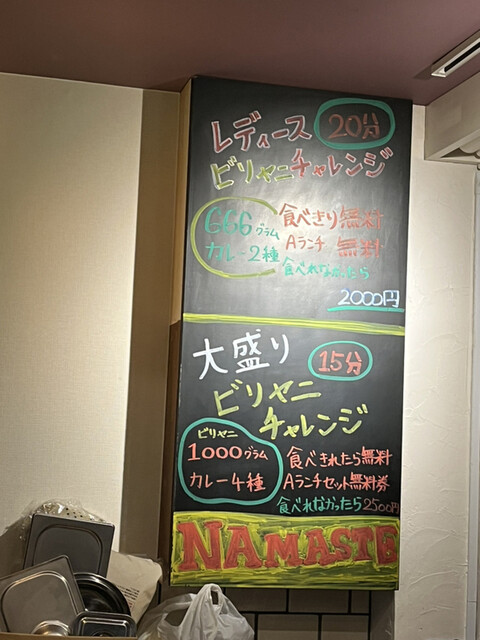 レディース 20分
ビリヤニチャレンジ
666グラム 食べきり無料
カレー2種 Aランチ 無料
食べれなかったら
2000円
大盛り 15分
ビリヤニ
チャレンジ
ビリヤニ
1000グラム 食べきれたら無料
カレー4種 Aランチセット無料券
食べれなかったら2500円
NAMASTE